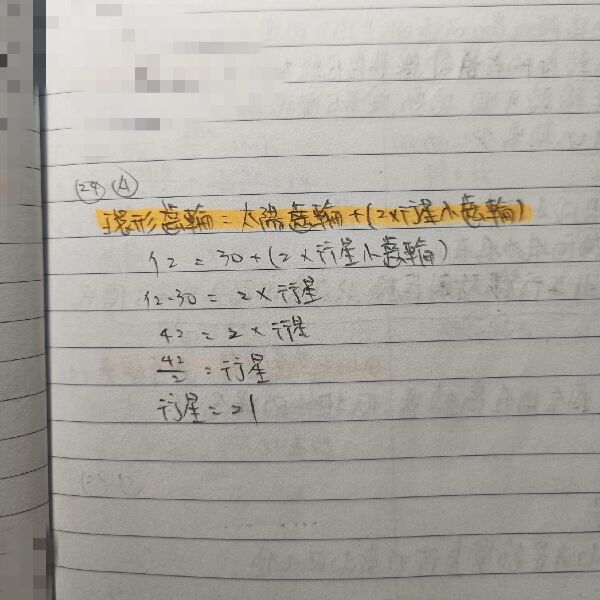 (24) (A)
環形齒輪 = 太陽齒輪 + (2×行星小齒輪)
72 = 30 + (2 × 行星小齒輪)
72-30 = 2 × 行星
42 = 2 × 行星
42/2 = 行星
行星 = 21